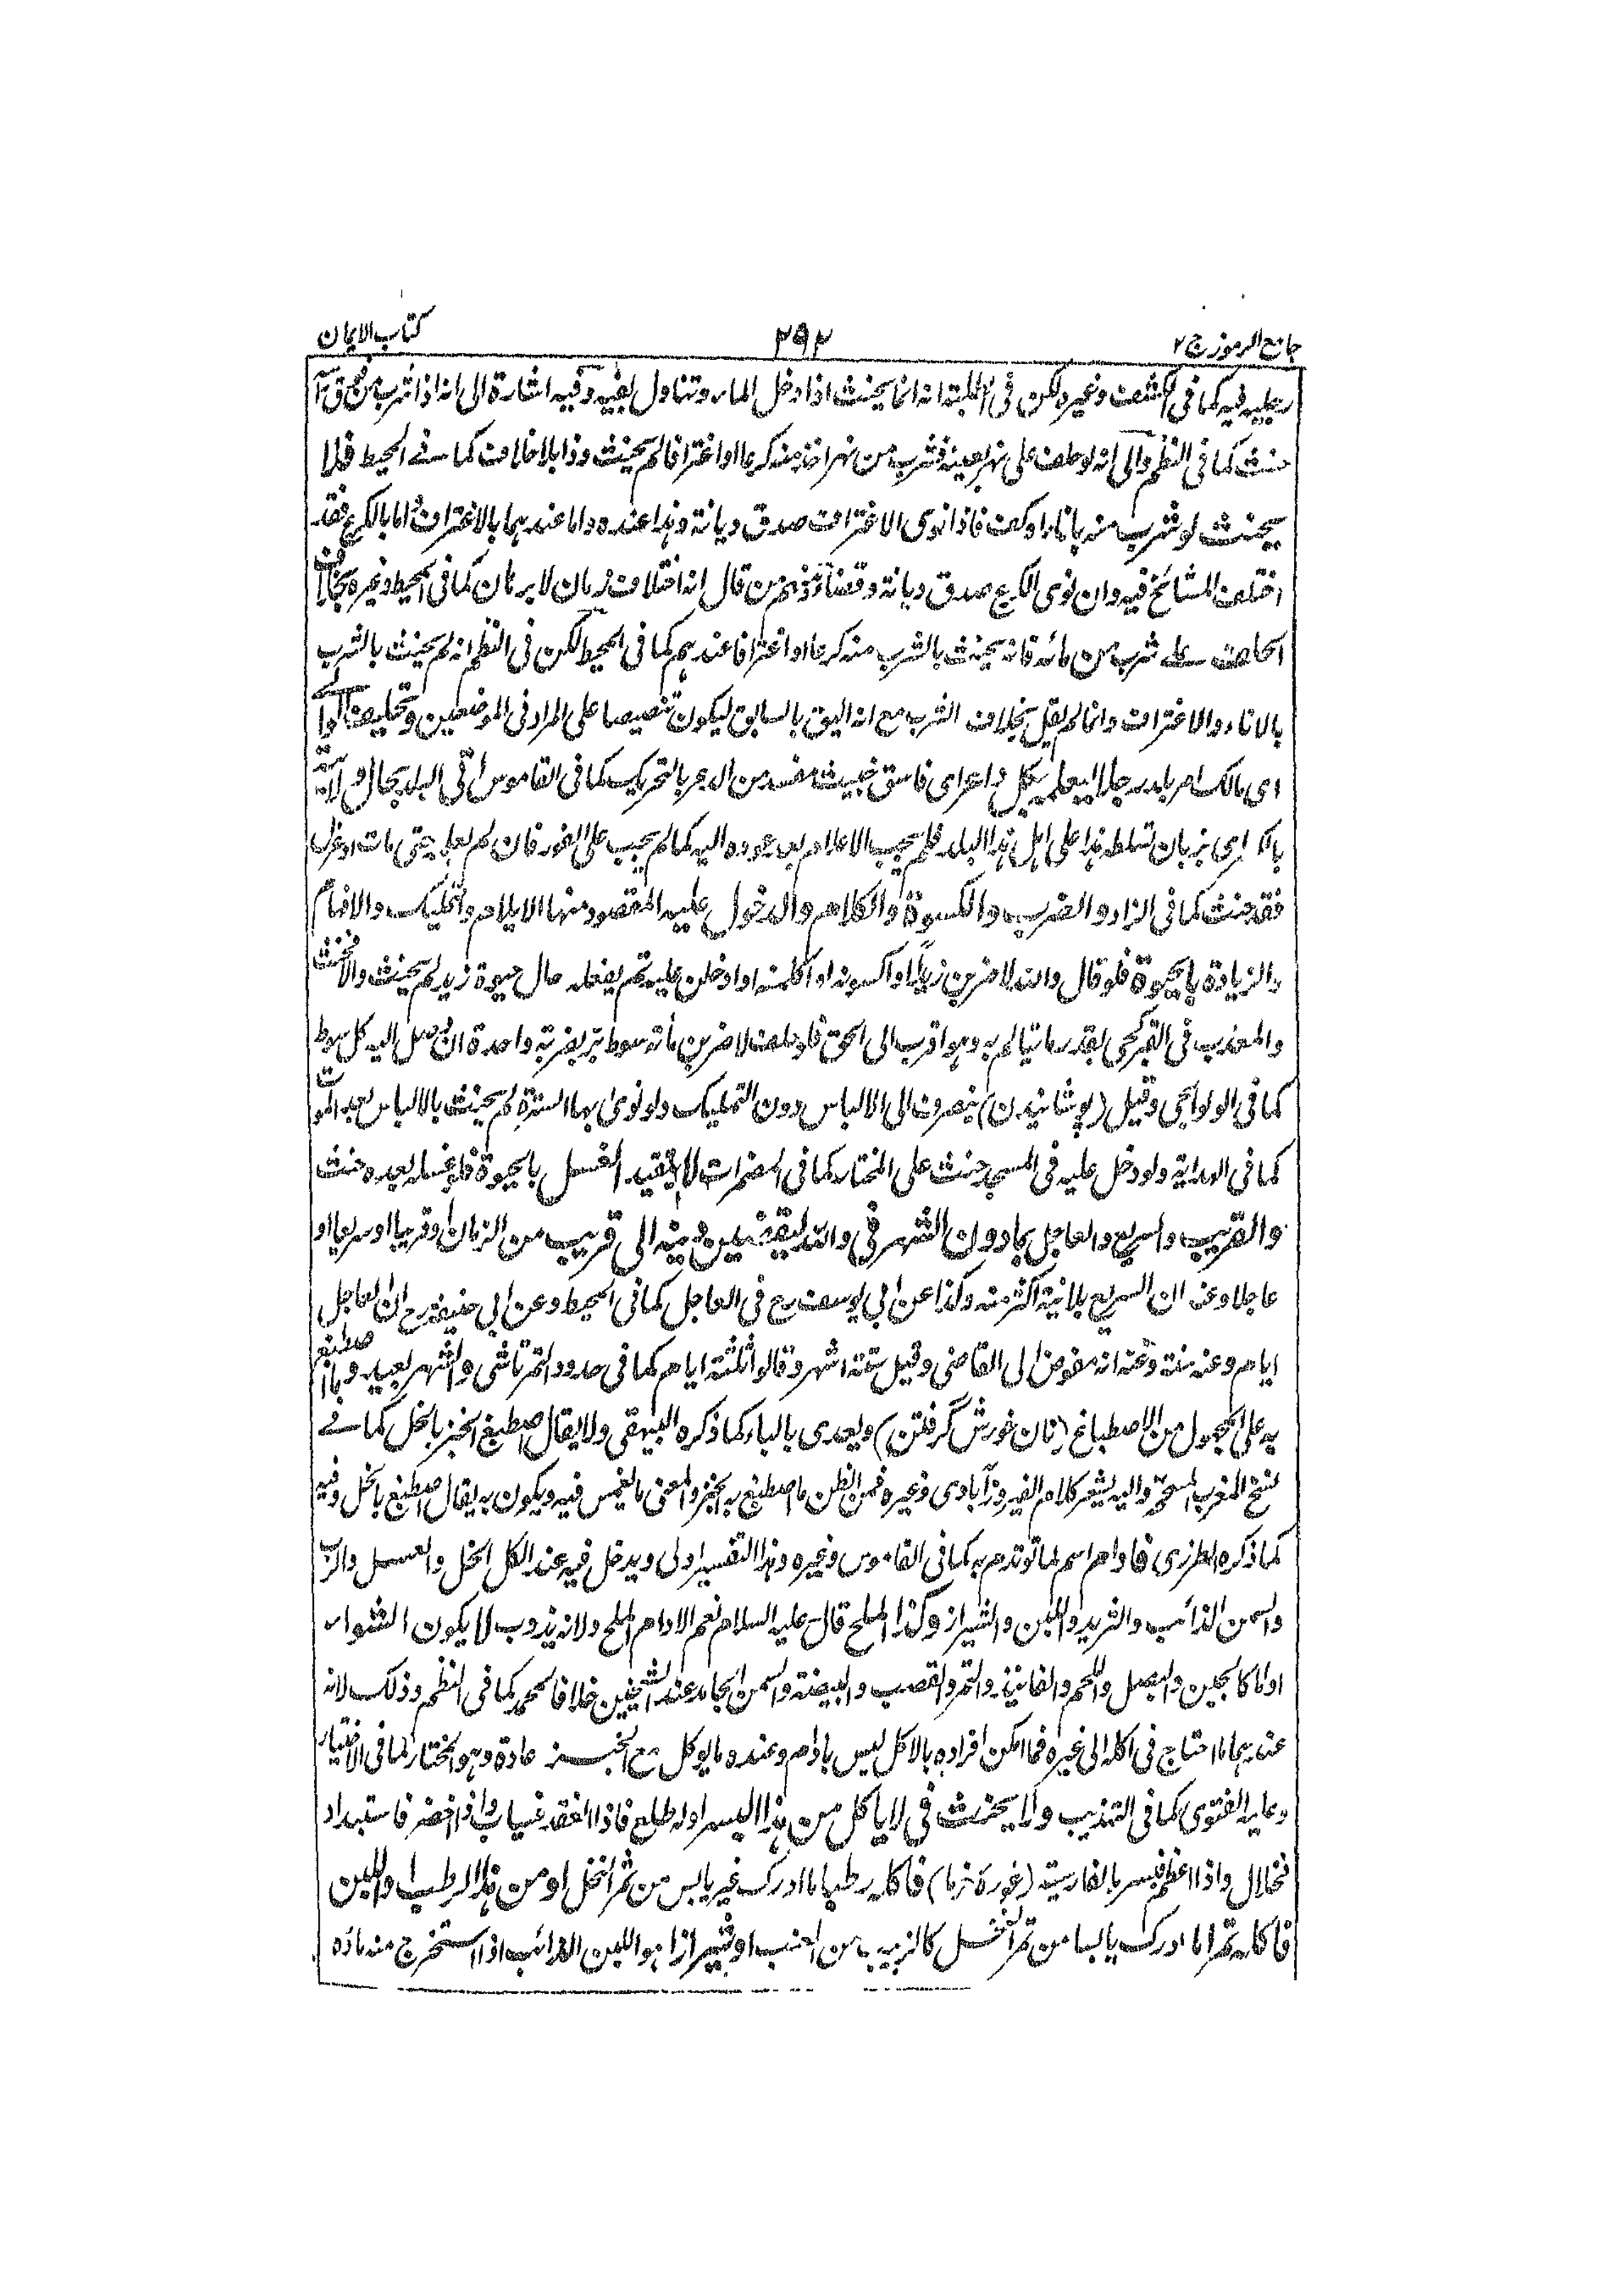 جامع الرموز ج٢
٢٩٢
كتاب الايمان
رجليه فيه كما فى الكشف وغيره لكن فى الطلبة انه انما يحنث اذا دخل الماء وتناول بفيه وفيه اشارة الى انه اذا شرب من
حنث كما فى النظم والى انه لو حلف على نهر بعينه فشرب من نهر اخذ منه كرعا او اغترافا لم يحنث وذا بلا خلاف كما فى المحيط فلا
يحنث لو شرب منه باناء او كف فاذا نوى الاغتراف صدق ديانة وهذا عنده واما عندهما بالاغتراف واما بالكرع فقد
اختلف المشائخ فيه وان نوى الكرع صدق ديانة وقضاء ومنهم من قال انه اختلاف زمان لا برهان كما فى المحيط وغيره بخلاف
الحلف على شرب من مائه فانه يحنث بالشرب منه كرعا او اغترافا عندهم كما فى المحيط لكن فى النظم انه لم يحنث بالشرب
بالاناء والاغتراف وانما لم يقل بخلاف الشرب مع انه اليق بالسابق ليكون تنصيصا على المراد فى الموضعين وتحليف الوالى
اى مالك امر بلد رجلا ليعلمه بكل داعر اى فاسق خبيث مفسد من الدعر بالتحريك كما فى القاموس اتى البلد بحال ولايته
بالا اى بزمان تسلطه هذا على اهل هذا البلد فلم يجب الاعلام بعد عوده اليه كما لم يجب على الفور فان لم يعلم حتى مات او عزل
فقد حنث كما فى الزاد والضرب والكسوة والكلام والدخول عليه المقصود منها الايلام والتمليك والافهام
والزيادة بالحيوة فلو قال والله لاضربن زيدا او اكسونه او اكلمنه او ادخلن عليه ثم يفعله حال حيوة زيد لم يحنث والا فحنث
والمعذب فى القبر حى بقدر ما يتألم به وهو اقرب الى الحق فلو حلف لاضربن مأته سوط بر بضربة واحدة ان وصل اليه كل سوط
كما فى الولوالجى وقيل (پوشانيدن) ينصرف الى الالباس دون التمليك ولو نوى بها السترة لم يحنث بالالباس بعد الموت
كما فى الهداية ولو دخل عليه فى المسجد حنث على المختار كما فى المضمرات لا يتقيد الغسل بالحيوة فلو غسله بعده حنث
والقريب والسريع والعاجل بما دون الشهر فى والله ليقضين دينه الى قريب من الزمان او قريبا او سريعا او
عاجلا وعنه ان السريع بلا نية اكثر منه وكذا عن ابى يوسف رح فى العاجل كما فى المحيط وعن ابى حنيفة رح ان العاجل
ايام وعنه سنة وعنه انه مفوض الى القاضى وقيل ستة اشهر وقالوا ثلثة ايام كما فى حدود التمرتاشى والشهر بعيد وما اصطبغ
به على المجهول من الاصطباغ (نان خورش گرفتن) ويعدى بالباء كما ذكره البيهقى ولا يقال اصطبغ الخبز بالخل كما فى
نسخ المغرب المصححة واليه يشير كلام الفيروزآبادى وغيره فمن الظن ما اصطبغ به الخبز والمعنى ما يغمس فيه ويكون به يقال اصطبغ بالخل وفيه
كما ذكره المطرزى فادام اسم لما تؤتدم به كما فى القاموس وغيره وهذا التفسير اولى ويدخل فيه عند الكل الخل والعسل والرب
والسمن الذائب والثريد واللبن والشيراز وكذا الملح قال عليه السلام نعم الادام الملح ولانه يذوب لا يكون الشواء
اداما كالجبن والبصل واللحم والفانيذ والتمر والقصب والبيضة والسمن الجامد عند الشيخين خلافا لمحمد كما فى النظم وذلك لانه
عندهما ما احتاج فى اكله الى غيره فما امكن افراده بالاكل ليس بادام وعنده ما يوكل مع الخبز عادة وهو المختار كما فى الاختيار
وعليه الفتوى كما فى التهذيب ولا يحنث فى لا ياكل من هذا البسر اوله طلع فاذا انعقد فسياب واذا اخضر فاستبداد
فخلال واذا عظم فبسر بالفارسية (غورۀ خرما) فاكله رطبا ما ادرك غير يابس من ثمر النخل او من هذا الرطب او اللبن
فاكله تمرا ما ادرك يابسا من ثمر النخل كالزبيب من العنب او شيرازا هو اللبن الذائب اذا استخرج منه ماؤه